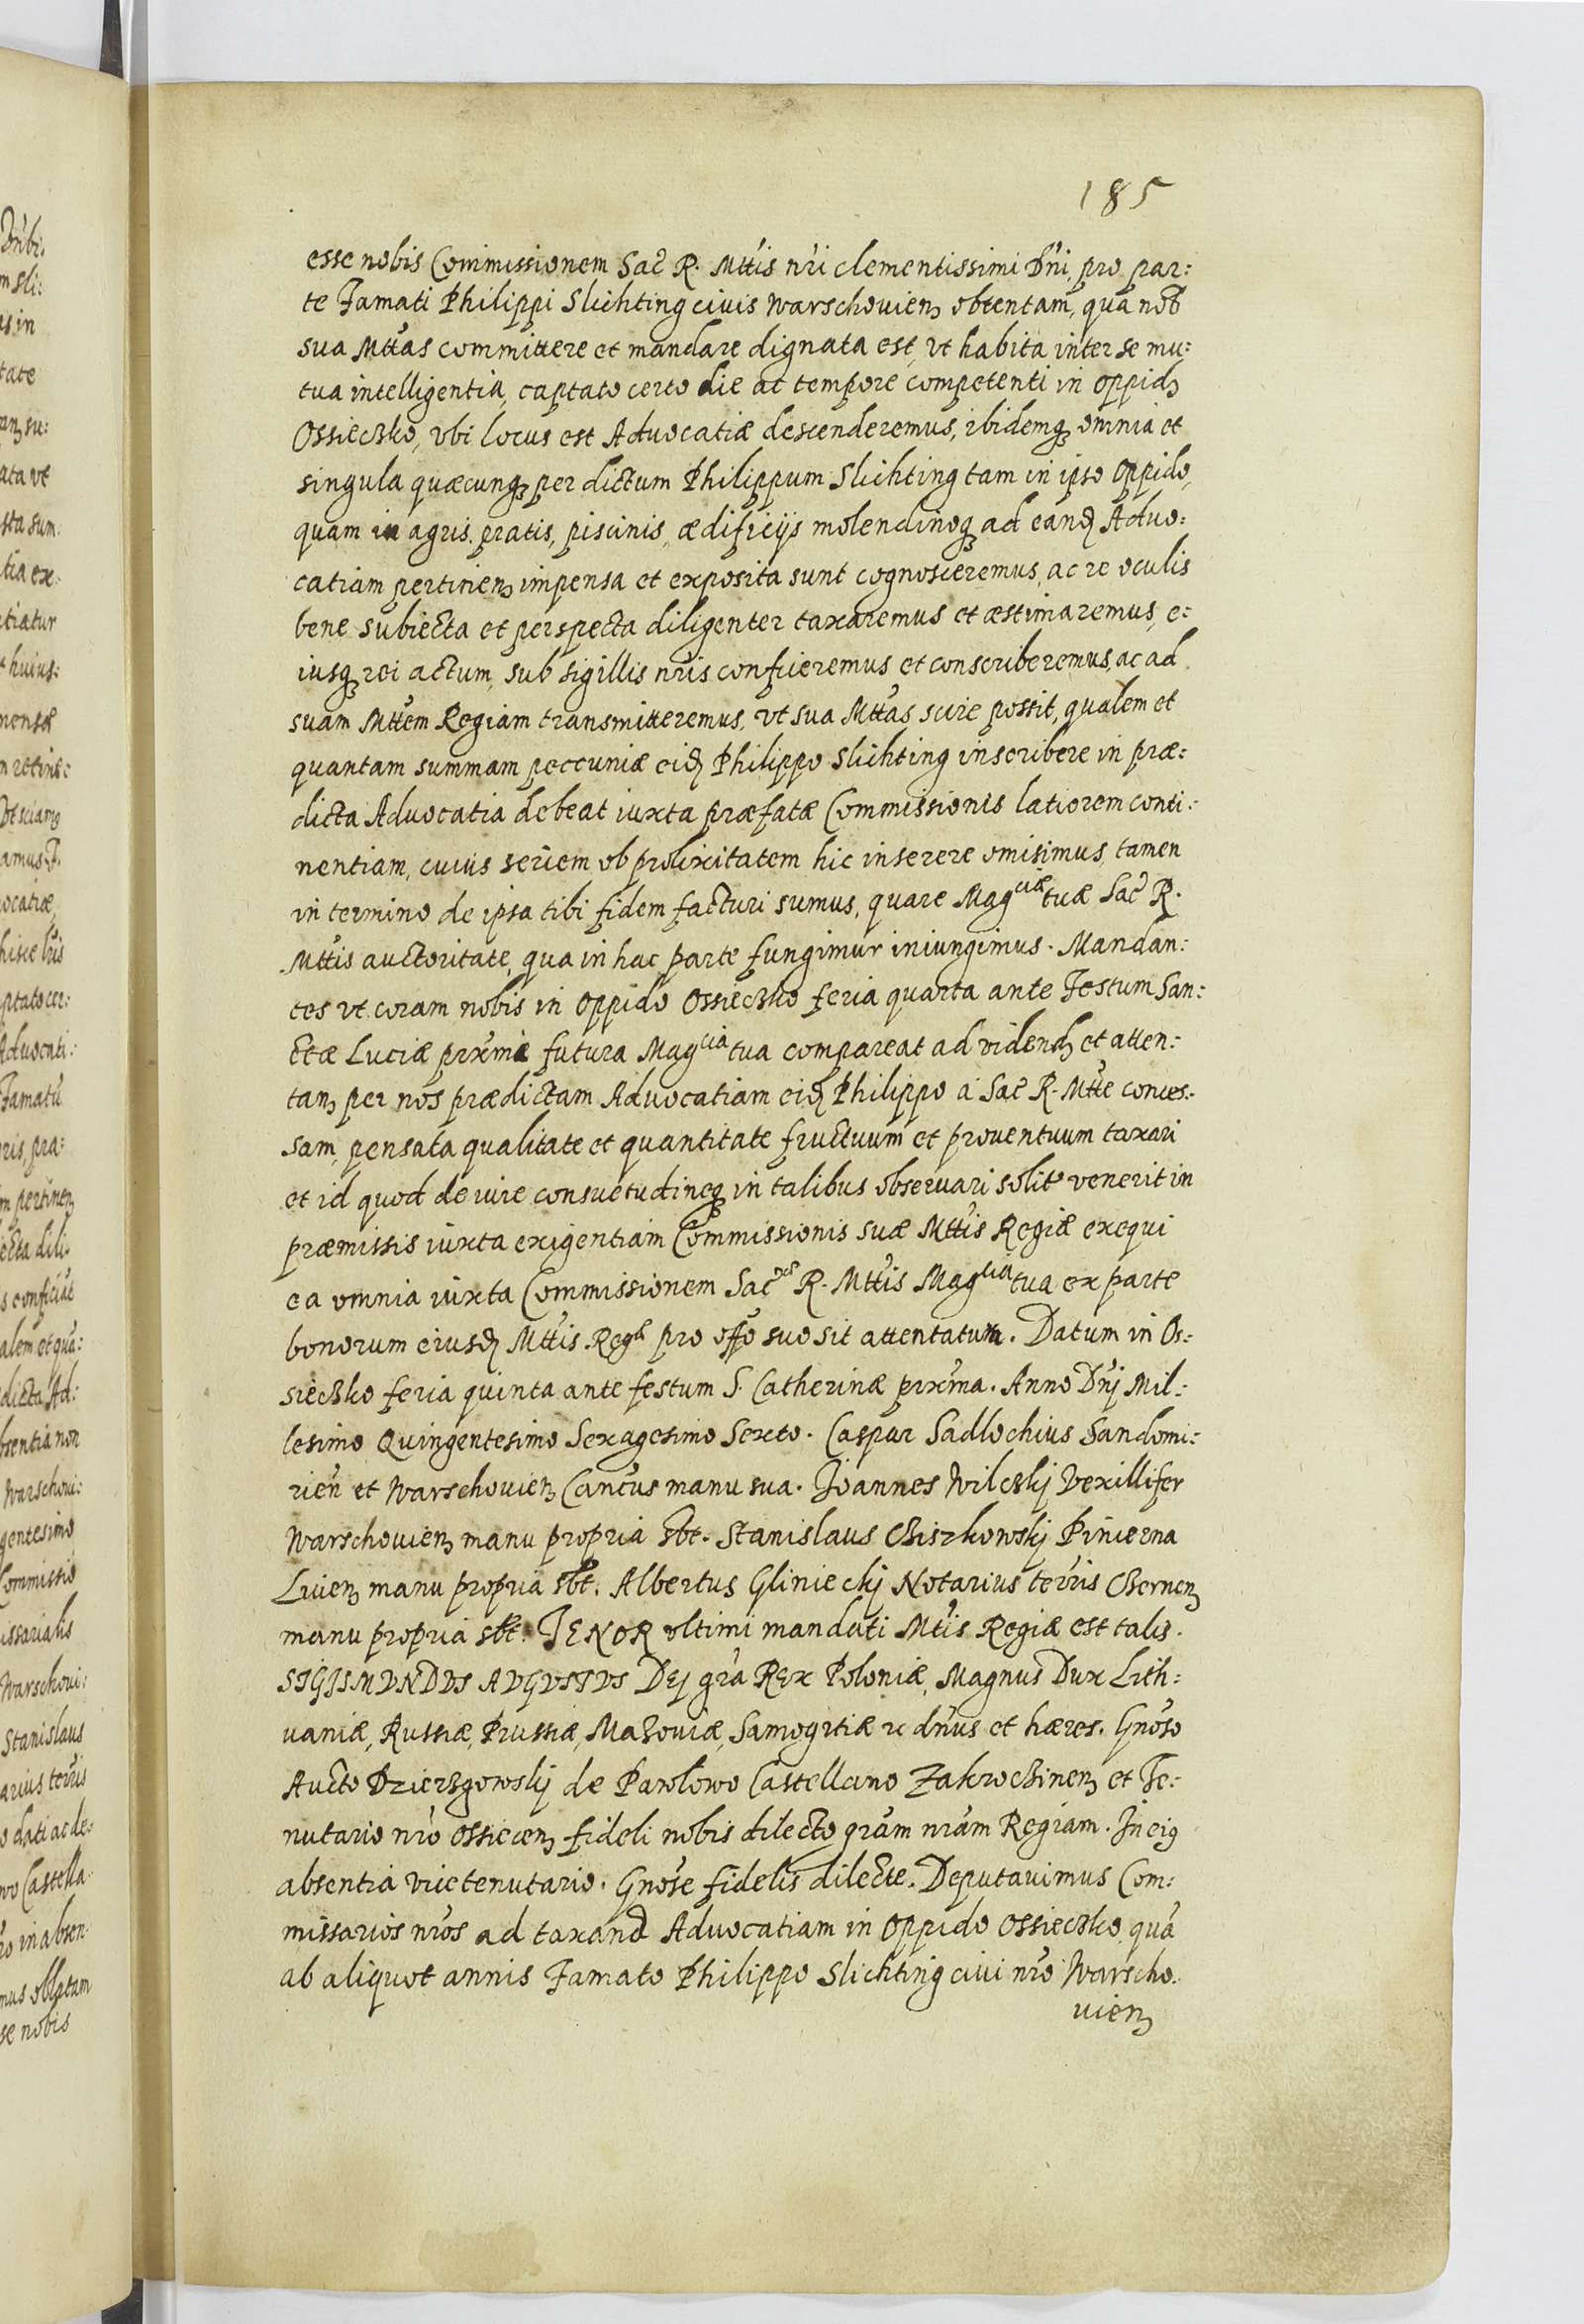 185
esse nobis Commissionem Sac̃ R. Mttis nr̃i clementissimi Dñi, pro par:
te Famati Philippi Slichting civis Warschouien̄ obtentam, qua nob̃
sua Mttas committere et mandare dignata est, vt habita inter se mu:
tua intelligentia, captato certo die ac tempore competenti in oppidꝫ
Ossieczko, vbi locus est Aduocatiæ descenderemus, ibidemqꝫ omnia et
singula quæcunqꝫ per dictum Philippum Slichting tam in ipso oppido,
quam in agris, pratis, piscinis, ædificijs molendinoqꝫ ad eandꝫ Aduo:
catiam pertinenꝫ impensa et exposita sunt cognosceremus, ac re oculis
bene subiecta et perspecta diligenter taxaremus et æstimaremus, e:
iusqꝫ rei actum, sub sigillis nr̃is conficeremus et conscriberemus, ac ad
suam Mttem Regiam transmitteremus, vt sua Mttas scire possit, qualem et
quantam summam peccuniæ eidꝫ Philippo Slichting inscribere in præ:
dicta Aduocatia debeat iuxta præfatæ Commissionis latiorem conti:
nentiam, cuius seriem ob prolixitatem hic inserere omisimus, tamen
in termino de ipsa tibi fidem facturi sumus, quare Mag^ciæ tuæ Sac̃ R.
Mttis auctoritate, qua in hac parte fungimur iniungimus. Mandan:
tes vt coram nobis in oppido Ossieczko feria quarta ante Festum San:
ctæ Luciæ prx̃ima futura Mag^cia tua compareat ad videndꝫ et atten:
tanꝫ per nos prædictam Aduocatiam eidꝫ Philippo a Sac̃ R. Mtte conces:
sam, pensata qualitate et quantitate fructuum et prouentuum taxari
et id quod de iure consuetudineqꝫ in talibus obseruari solitꝰ venerit in
præmissis iuxta exigentiam Commissionis suæ Mttis Regiæ exequi
ea omnia iuxta Commissionem Sac^ræ R. Mttis Mag^cia tua ex parte
bonorum eiusdꝫ Mttis Regæ pro offo suo sit attentatum. Datum in Os:
sieczko feria quinta ante festum S. Catherinæ prx̃ma. Anno Dñj Mil:
lesimo Quingentesimo Sexagesimo Sexto. Caspar Sadlochius Sandomi:
rien̄ et Warschouienꝫ Can̄cus manu sua. Joannes Wilczkj Vexillifer
Warschouienꝫ manu propria sb̃t. Stanislaus Cziszkowskj Pincerna
Liuienꝫ manu propria sb̃t. Albertus Glinieckj Notarius terr̃is Czernenꝫ
manu propria sb̃t. TENOR vltimi mandati Mttis Regiæ est talis.
SIGISMVNDVS AVGVSTVS Dej gr̃a Rex Poloniæ, Magnus Dux Lith:
uaniæ, Russiæ, Prussiæ, Mazouiæ, Samogitiæ ꝛc dn̄us et hæres. Gnõso
Aucto Dzierzgowskj de Pawlowo Castellano Zakroczinenꝫ et Te:
nutario nr̃o Ossiecenꝫ fideli nobis dilecto grãm nrãm Regiam. In eiꝰ
absentia vicetenutario. Gnõse fidelis dilecte. Deputauimus Com:
missarios nr̃os ad taxand̃ Aduocatiam in oppido Ossieczko, quã
ab aliquot annis Famato Philippo Slichting ciui nr̃o Warscho.
uienꝫ